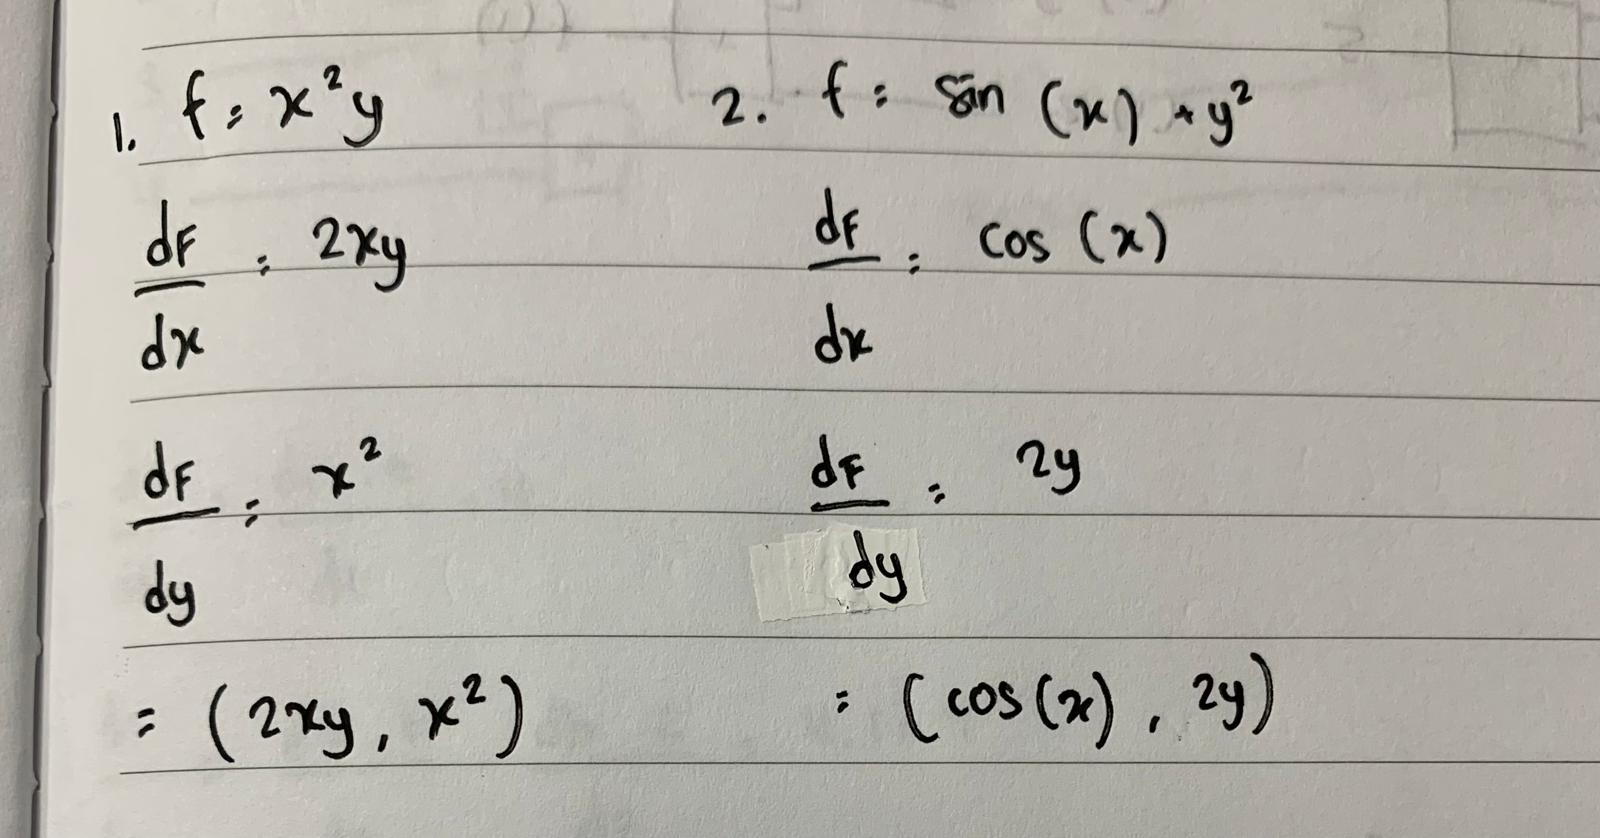 1. f = x²y
dF/dx = 2xy
dF/dy = x²
= (2xy, x²)
2. f = sin (x) + y²
dF/dx = cos (x)
dF/dy = 2y
= (cos(x), 2y)